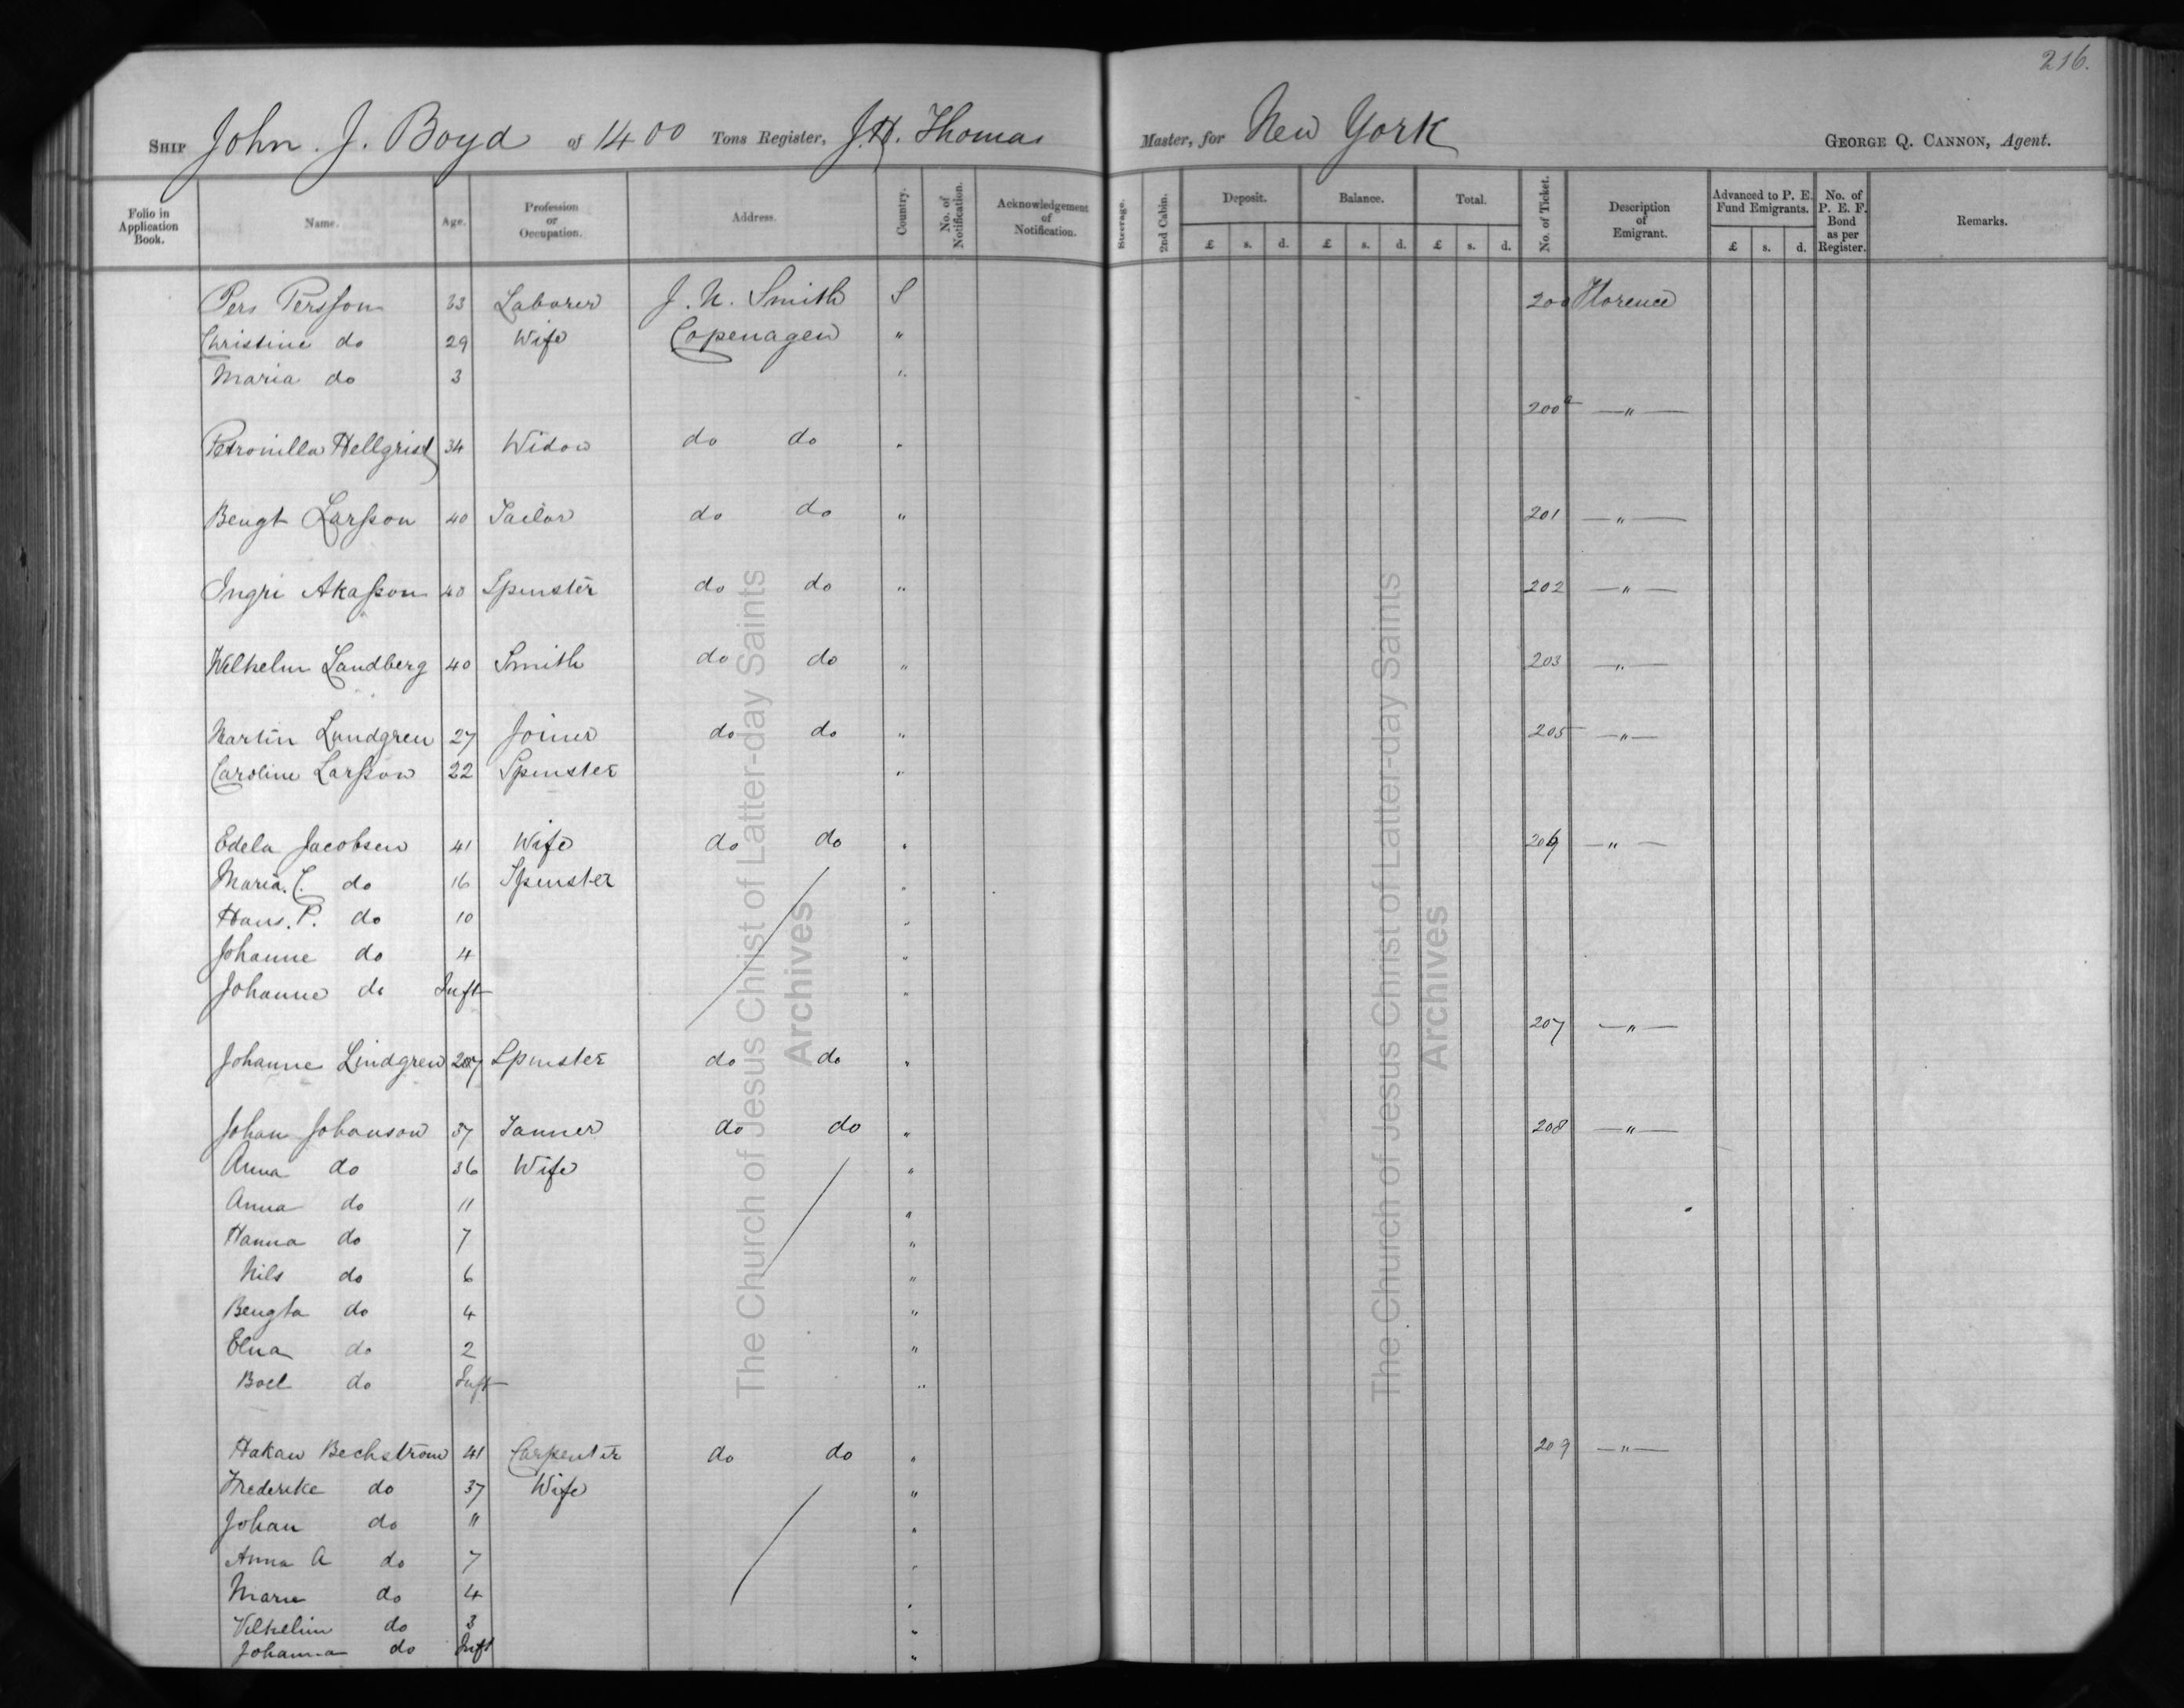 216.
SHIP John. J. Boyd of 1400 Tons Register, J.H. Thomas Master, for New York GEORGE Q. CANNON, Agent.
Folio in Application Book. Name. Age. Profession or Occupation. Address. Country. No. of Notification. Acknowledgement of Notification. Steerage. 2nd Cabin. Deposit. Balance. Total. No. of Ticket. Description of Emigrant. Advanced to P. E. Fund Emigrants. No. of P. E. F. Bond as per Register. Remarks.
£ s. d. £ s. d. £ s. d. £ s. d.
Pers Persson 33 Laborer J. N. Smith S 200 Florence
Christine do 29 Wife Copenagen "
Maria do 3 "
200a — " —
Petronilla Hellgrist 34 Widow do do "
Bengt Larsson 40 Tailor do do " 201 — " —
Ingri Akasson 40 Spinster do do " 202 — " —
Wilhelm Landberg 40 Smith do do " 203 — " —
Martin Lundgren 27 Joiner do do " 205 — " —
Caroline Larsson 22 Spinster "
Edela Jacobsen 41 Wife do do " 206 — " —
Maria. C. do 16 Spinster "
Hans. P. do 10 "
Johanne do 4 "
Johanne do Inft "
207 — " —
Johanne Lindgren Spinster do do "
Johan Johanson 37 Tanner do do " 208 — " —
Anna do 36 Wife "
Anna do 11 "
Hanna do 7 "
Nils do 6 "
Bengta do 4 "
Elna do 2 "
Boel do Inft "
Hakan Bechström 41 Carpenter do do " 209 — " —
Frederike do 37 Wife "
Johan do 11 "
Anna A do 7 "
Marie do 4 "
Vilhelm do 3 "
Johanna do Inft "
The Church of Jesus Christ of Latter-day Saints
Archives
The Church of Jesus Christ of Latter-day Saints
Archives